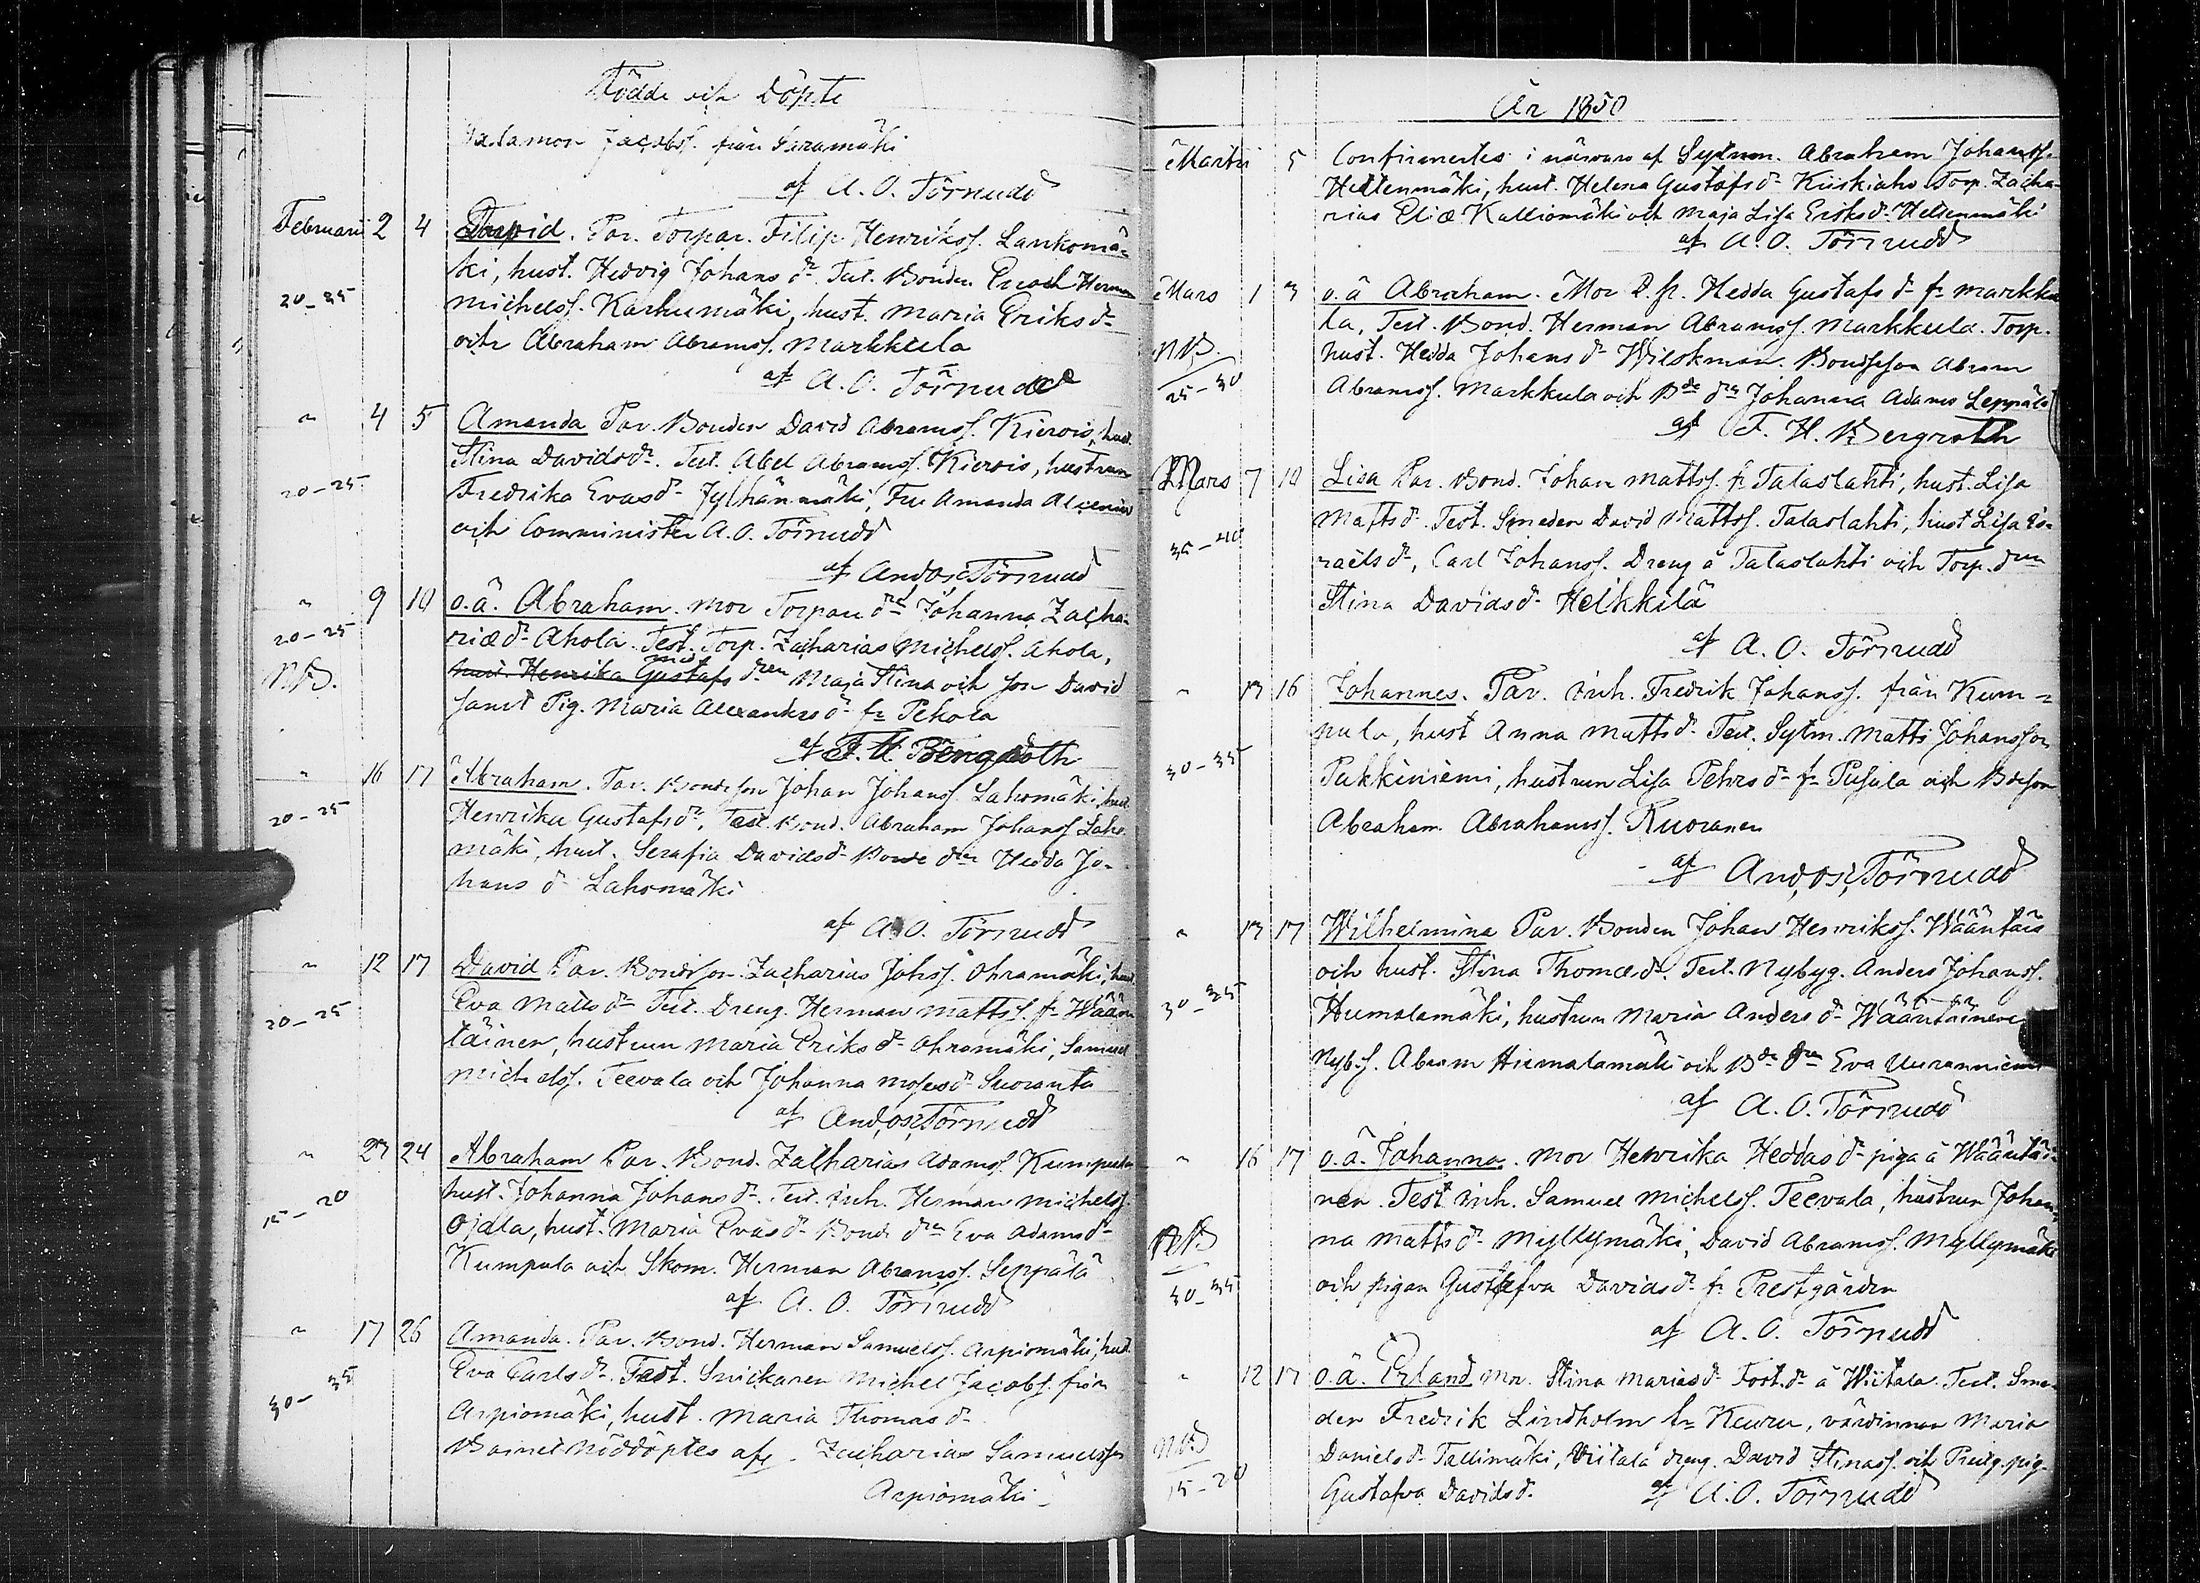 Födde och Döpte
Salamon Jacobss. från Saramäki
af A. O. Törnudd
Februarii 2 4 David. Par. Torpar. Filip Henrikss. Lankomä-
ki, hust. Hedvig Johans dr Test. Bonden Herman
20-25 Michelss. Karhumäki, hust. Maria Eriks dr
och Abraham Abramss. Markkula
af A. O. Törnudd
" 4 5 Amanda Par. Bonden David Abramss. Kierois, hust.
Stina Davidsdr. Test. Abel Abramss. Kierois, hustrun
20-25 Fredrika Evasdr Jylhänmäki, Fru Amanda
och Comminister A. O. Törnudd
af And. Osc. Törnudd
" 9 10 o.ä. Abraham. Mor Torpare dr Johanna Zacha-
20-25 riædr Ahola. Test. Torp. Zacharias Michelss. Ahola,
NB. hust. Henrika Gustafs dren Maja Stina och son David
samt Pig. Maria Alexandersdr fr Pekola
af F. H. Bergroth
" 16 17 Abraham. Par. Bondeson Johan Johanss. Lahomäki, hust.
20-25 Henrika Gustafsdr, Test. Bond. Abraham Johanss. Laho-
mäki, hust. Serafia Davidsdr Bonde dren Hedda Jo-
hans dr Lahomäki
af A. O. Törnudd
" 12 17 David Par. Bondeson Zacharias Johss. Ohramäki, hust.
Eva Matts dr Test. Dreng. Herman Mattss. fr Wään-
20-25 täinen, hustrun Maria Eriks dr Ohramäki, Samuel
Michelss. Teevala och Johanna Mosesdr Suoranta
af And. Osc. Törnudd
" 23 24 Abraham Par. Bond. Zacharias Adamss. Kumpula
hust. Johanna Johans dr. Test. inh. Herman Michelss.
15-20 Ojala, hust. Maria Evas dr Bonde dren Eva Adams dr
Kumpula och Skom. Herman Abramss. Seppälä
af A. O. Törnudd
" 17 26 Amanda. Par. Bond. Herman Samuelss. Arpiomäki, hust.
Eva Carls dr. Test. Snickaren Michel Jacobss. från
30-35 Arpiomäki, hust. Maria Thomas dr
Barnet nöddöptes af Zacharias Samuelsson
Arpiomäki
År 1850
Martii 5 Confirmertes i närvaro af Sytnm. Abraham Johanss.
Hettenmäki, hust. Helena Gustafsdr Kiiskiaho Torp. Zacha-
rias Eliæ Kalliomäki och Maja Lisa Eriksdr Hettenmäki
af A. O. Törnudd
Mars 1 3 o.ä Abraham. Mor Hedda Gustafs dr fr Markku-
la, Test. Bond. Herman Abramss. Markkula. Torp.
NB. hust. Hedda Johans dr Wilskman. Bondeson Abram
25-30 Abramss. Markkula och Bde dren Johanna Adams Leppälä
af F. H. Bergroth
Mars 7 10 Lisa Par. Bond. Johan Mattss. fr Talaslahti, hust. Lisa
Matts dr. Test. Smeden David Mattss. Talaslahti, hust Lisa Is-
35-40 raels dr, Carl Johanss. Dreng å Talaslahti och Torp. dren
Stina Davidsdr Heikkilä
af A. O. Törnudd
" 13 16 Johannes. Par. inh. Fredrik Johanss. från Kum-
pula, hust Anna Matts dr Test. Sytm. Matts Johansson
30-35 Pukkiniemi, hustrun Lisa Pehrs dr fr Pusula och Bdeson
Abraham Abrahamss. Ruoranen
af And. Osc. Törnudd
" 13 17 Wilhelmina Par. Bonden Johan Henrikss. Wääntäis
och hust. Stina Thomæ dr. Test. Nybyg. Anders Johanss.
30-35 Humalamäki, hustrun Maria Anders dr Wääntäinen
Nybs. Abram Humalamäki och Bde dren Eva Uuranniemi
af A. O. Törnudd
" 16 17 o.ä. Johanna. Mor Henrika Heddas dr piga å Wääntäi-
nen. Test. inh. Samuel Michelss. Teevala, hustrun Johan-
NB na Matts dr Myllymäki, David Abramss. Myllymäki
30-35 och pigan Gustafva Davidsdr fr Prestgården
af A. O. Törnudd
" 12 17 o.ä. Erland Mor. Stina Mariasdr Fost. dr å Wiitala. Test. Sme-
den Fredrik Lindholm fr Keuru, värdinnan Maria
NB Danielsdr Tallimäki, Viitala dreng. David Stinass. och Prestg. pig.
15-20 Gustafva Davids dr. af A. O. Törnudd